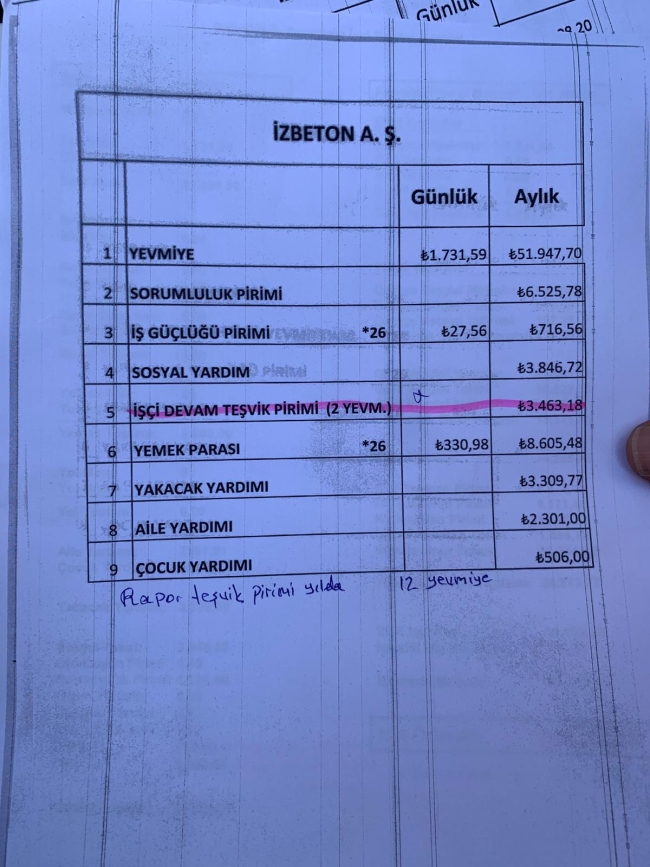 Günlük
İZBETON A. Ş.
Günlük Aylık
1 YEVMİYE ₺1.731,59 ₺51.947,70
2 SORUMLULUK PİRİMİ ₺6.525,78
3 İŞ GÜÇLÜĞÜ PİRİMİ *26 ₺27,56 ₺716,56
4 SOSYAL YARDIM ₺3.846,72
5 İŞÇİ DEVAM TEŞVİK PİRİMİ (2 YEVM.) ₺3.463,18
6 YEMEK PARASI *26 ₺330,98 ₺8.605,48
7 YAKACAK YARDIMI ₺3.309,77
8 AİLE YARDIMI ₺2.301,00
9 ÇOCUK YARDIMI ₺506,00
Rapor teşvik pirimi yılda 12 yevmiye